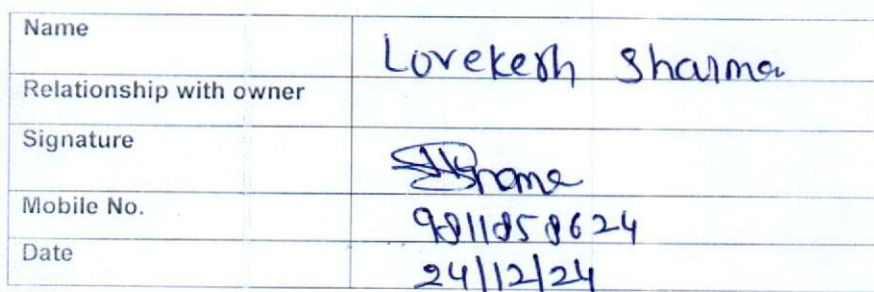 Name Lovekesh Sharma
Relationship with owner
Signature
Mobile No. 9811858624
Date 24/12/24